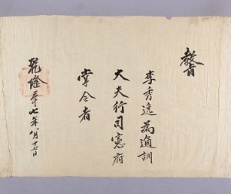 教旨
李秀逸爲通訓
大夫行司憲府
掌令者
乾隆四十七年八月十七日